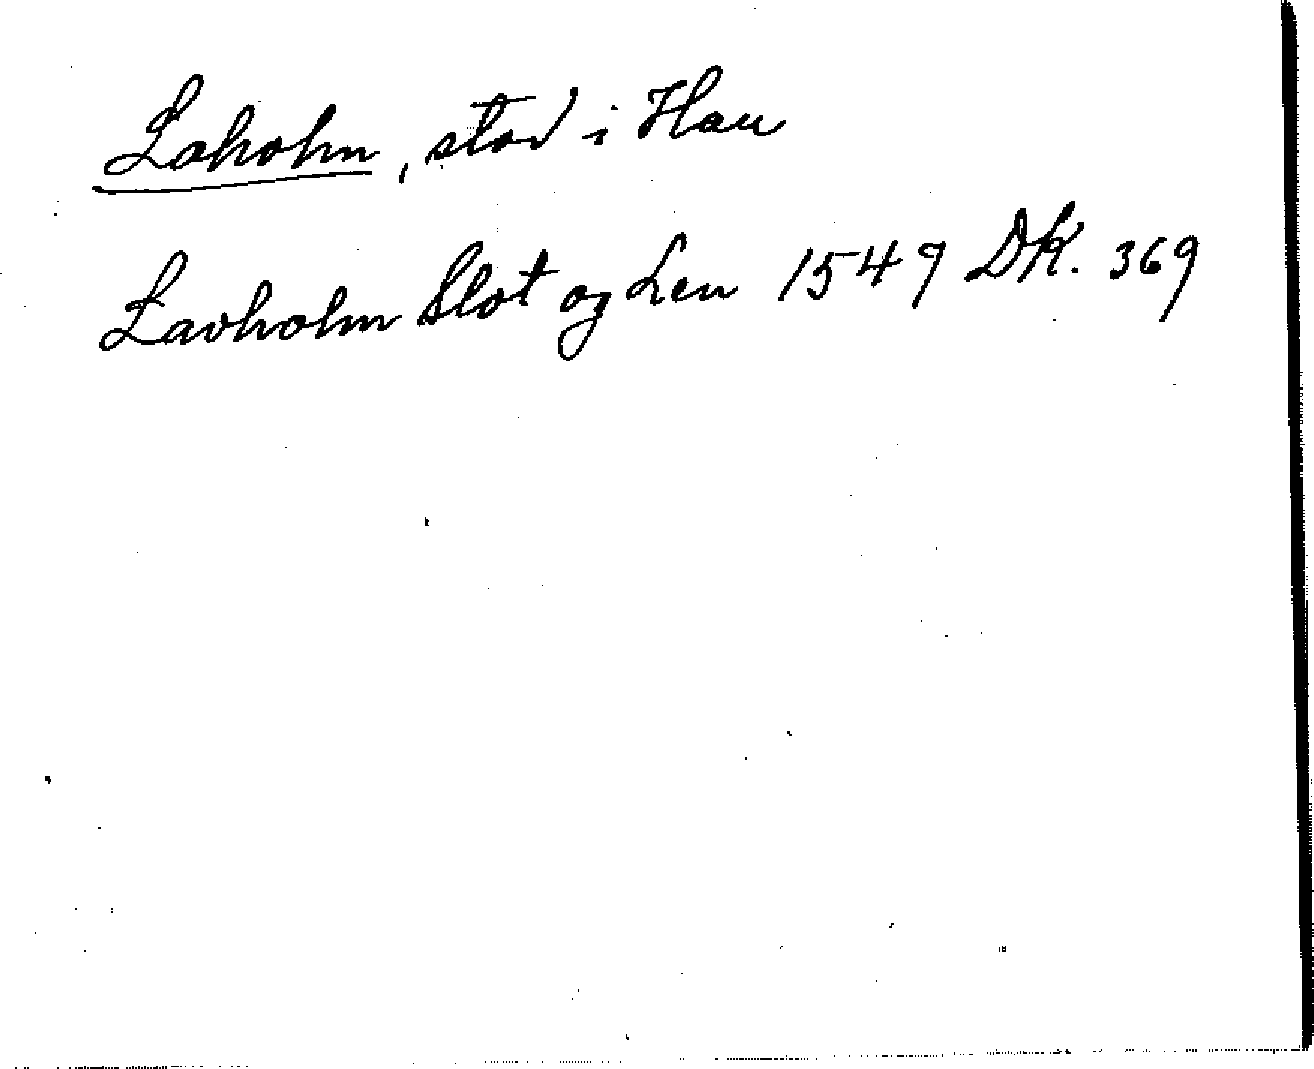 Laholm, stad i Hall
Lavholm Slot og Len 1549 DK. 369